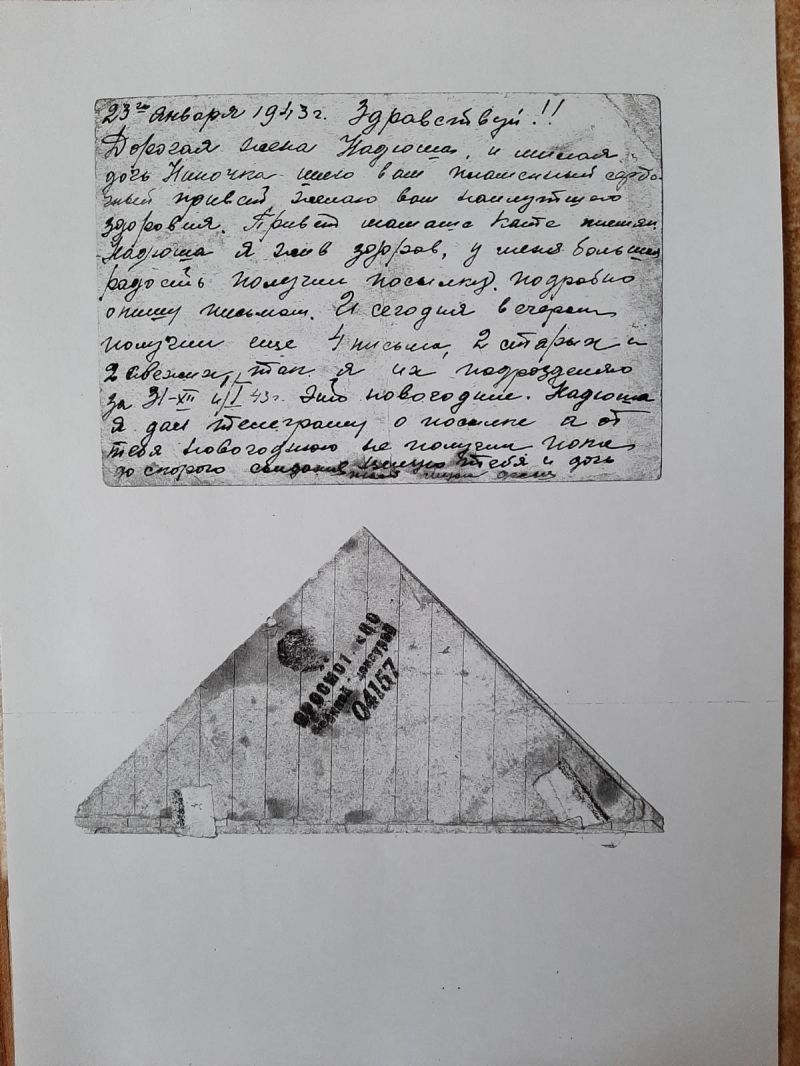 23го января 1943г. Здравствуй!!
Дорогая жена Надюша, и милая
дочь Ниночка шлю вам пламенный серде-
чный привет желаю вам наилутшего
здоровия. Привет мамаше Кате
Надюша я жив здоров, у меня большая
радость получил посылку. подробно
опишу письмом. И сегодня вечером
получил еще 4 письма, 2 старых и
2 свежих, так я их подрозделяю
за 31-XII и 1/I 43г. Это новогодние. Надюша
я дал телеграмму о посылке а от
тебя новогоднюю не получил пока
до скорого свидания целую тебя и дочь
ПРОСМОТРЕНО
Военной Цензурой
04157